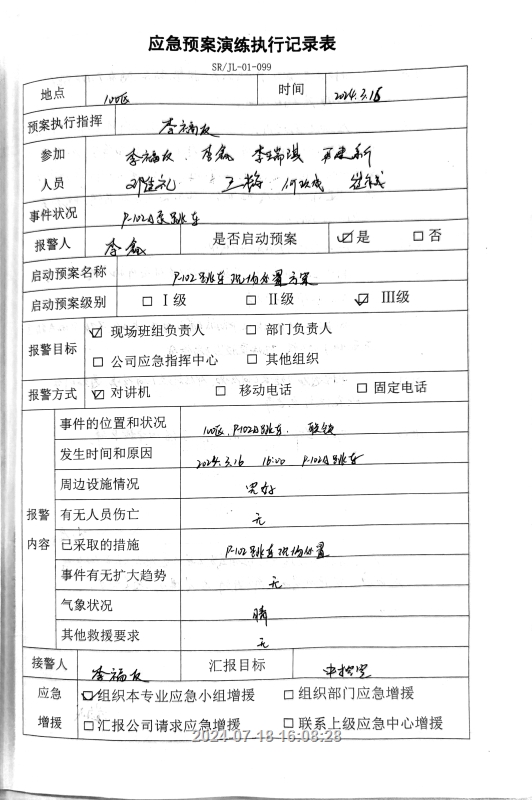 应急预案演练执行记录表
SR/JL-01-099
地点 100区 时间 2024.3.16
预案执行指挥 李福友
参加 李福友 李磊 李瑞琪
人员
事件状况 P-102A泵跳车
报警人 李磊 是否启动预案 ☑是 □否
启动预案名称 P-102跳车现场处置方案
启动预案级别 □Ⅰ级 □Ⅱ级 ☑Ⅲ级
报警目标 ☑现场班组负责人 □部门负责人
□公司应急指挥中心 □其他组织
报警方式 ☑对讲机 □移动电话 □固定电话
报警内容
事件的位置和状况 100区，P-102A跳车，
发生时间和原因 2024.3.16 16:00 P-102A跳车
周边设施情况 完好
有无人员伤亡 无
已采取的措施 P-102跳车现场处置
事件有无扩大趋势 无
气象状况 晴
其他救援要求 无
接警人 李福友 汇报目标 中控室
应急 ☑组织本专业应急小组增援 □组织部门应急增援
增援 □汇报公司请求应急增援 □联系上级应急中心增援
2024-07-18 16:08:28